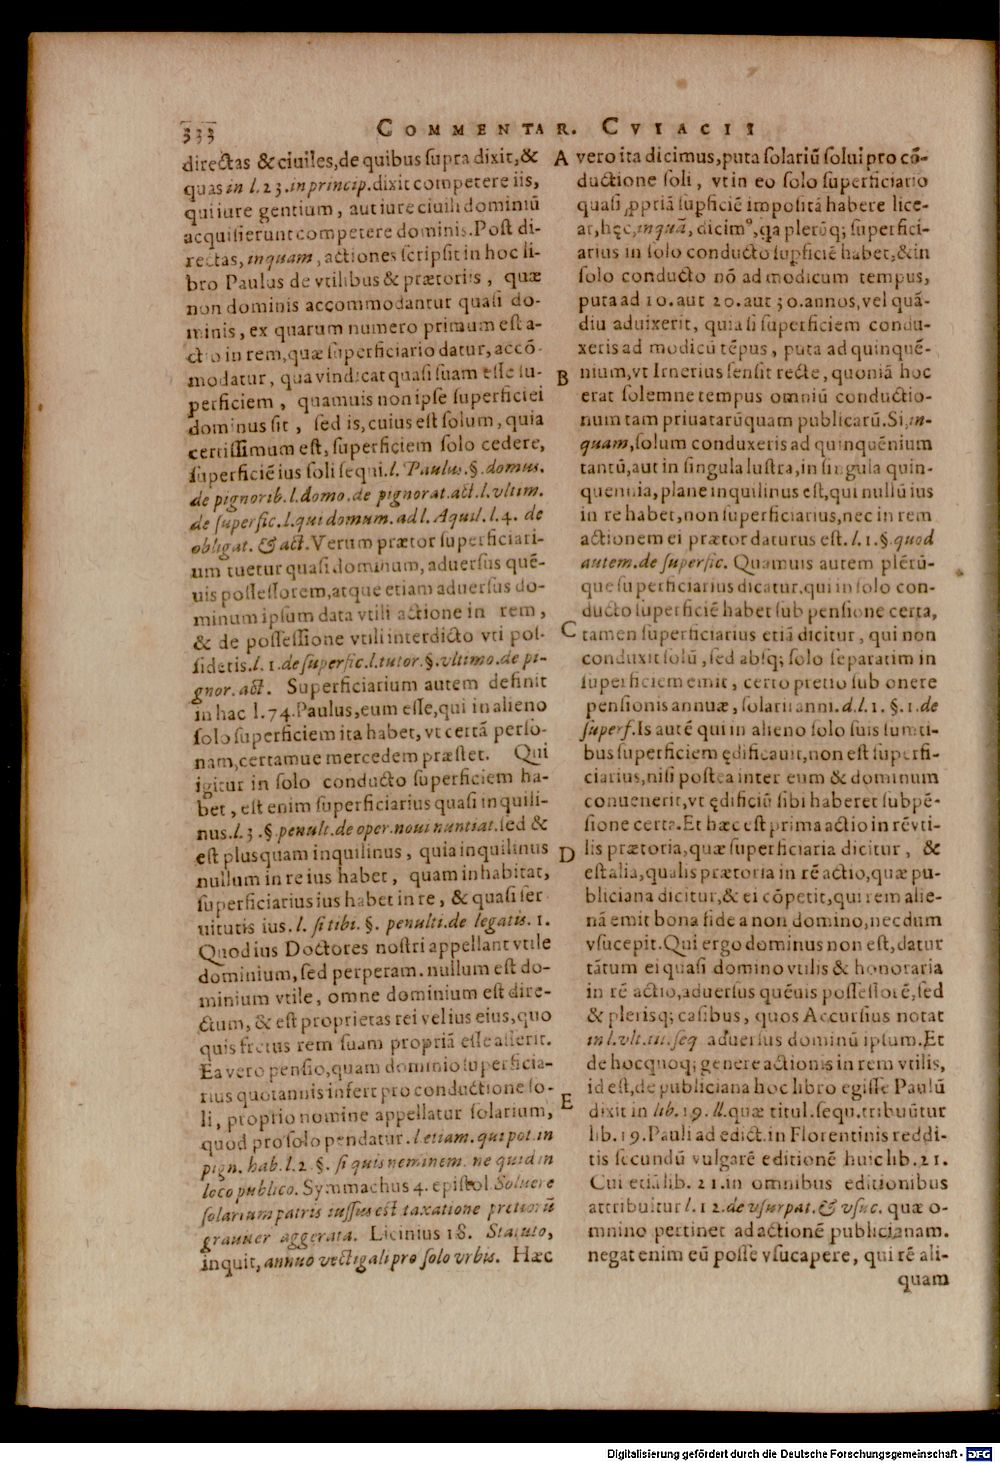 333
COMMENTAR. CVIACII
directas & ciuiles, de quibus supra dixit, &
quas in l. 23. in princip. dixit competere iis,
qui iure gentium, aut iure ciuili dominiũ
acquisierunt competere dominis. Post di-
rectas, inquam, actiones scripsit in hoc li-
bro Paulus de vtilibus & prætoriis, quæ
non dominis accommodantur quasi do-
minis, ex quarum numero primum est a-
ctio in rem, quæ superficiario datur, accõ-
modatur, qua vindicat quasi suam esse su-
perficiem, quamuis non ipse superficiei
dominus sit, sed is, cuius est solum, quia
certissimum est, superficiem solo cedere,
superficiẽ ius soli sequi. l. Paulus. §. domus.
de pignorib. l. domo. de pignorat. act. l. vltim.
de superfic. l. qui domum. ad l. Aquil. l. 4. de
obligat. & act. Verum prætor superficiari-
um tuetur quasi dominum, aduersus quẽ-
uis possessorem, atque etiam aduersus do-
minum ipsum data vtili actione in rem,
& de possessione vtili interdicto vti pos-
sidetis. l. 1. de superfic. l. tutor. §. vltimo. de pi-
gnor. act. Superficiarium autem definit
in hac l. 74. Paulus, eum esse, qui in alieno
solo superficiem ita habet, vt certã perso-
nam, certamue mercedem præstet. Qui
igitur in solo conducto superficiem ha-
bet, est enim superficiarius quasi inquili-
nus. l. 3. § penult. de oper. noui nuntiat. sed &
est plusquam inquilinus, quia inquilinus
nullum in re ius habet, quam inhabitat,
superficiarius ius habet in re, & quasi ser
uitutis ius. l. si tibi. §. penulti. de legatis. 1.
Quod ius Doctores nostri appellant vtile
dominium, sed perperam. nullum est do-
minium vtile, omne dominium est dire-
ctum, & est proprietas rei vel ius eius, quo
quis fretus rem suam propriã esse asserit.
Ea vero pensio, quam dominio superficia-
rius quotannis infert pro conductione so-
li, proprio nomine appellatur solarium,
quod pro solo pendatur. l etiam. qui pot. in
pign. hab. l. 2 §. si quis neminem. ne quid in
loco publico. Symmachus 4. epistol Soluere
solarium patris iussus est taxatione pretiorũ
grauiter aggerata. Licinius 18. Statuto,
inquit, annuo vectigali pro solo vrbis. Hæc
A vero ita dicimus, puta solariũ solui pro cõ-
ductione soli, vt in eo solo superficiario
quasi ꝓpriã supficiẽ impositã habere lice-
at, hęc, inquã, dicimꝰ, qa plerũq; superfici-
arius in solo conducto supficiẽ habet, & in
solo conducto nõ ad modicum tempus,
puta ad 10. aut 20. aut 30. annos, vel quã-
diu aduixerit, quia si superficiem condu-
xeris ad modicũ tẽpus, puta ad quinquẽ-
B nium, vt Irnerius sensit recte, quoniã hoc
erat solemne tempus omniũ conductio-
num tam priuatarũ quam publicarũ. Si, in-
quam, solum conduxeris ad quinquẽnium
tantũ, aut in singula lustra, in singula quin-
quennia, plane inquilinus est, qui nullũ ius
in re habet, non superficiarius, nec in rem
actionem ei prætor daturus est. l. 1. §. quod
autem. de superfic. Quamuis autem plẽrũ-
que superficiarius dicatur, qui in solo con-
ducto superficiẽ habet sub pensione certa,
C tamen superficiarius etiã dicitur, qui non
conduxit solũ, sed absq; solo separatim in
superficiem emit, certo pretio sub onere
pensionis annuæ, solarii anni. d. l. 1. §. 1. de
superf. Is autẽ qui in alieno solo suis sumti-
bus superficiem ędificauit, non est superfi-
ciarius, nisi postea inter eum & dominum
conuenerit, vt ędificiũ sibi haberet sub pẽ-
sione certa. Et hæc est prima actio in rẽ vti-
D lis prætoria, quæ superficiaria dicitur, &
est alia, qualis prætoria in rẽ actio, quæ pu-
bliciana dicitur, & ei cõpetit, qui rem alie-
nã emit bona fide a non domino, necdum
vsucepit. Qui ergo dominus non est, datur
tãtum ei quasi domino vtilis & honoraria
in rẽ actio, aduersus quẽuis possessorẽ, sed
& plerisq; casibus, quos Accursius notat
in l. vlt. tit. seq aduersus dominũ ipsum. Et
de hoc quoq; genere actionis in rem vtilis,
id est, de publiciana hoc libro egisse Paulũ
E dixit in lib. 19. ll. quæ titul. sequ. tribuũtur
lib. 19. Pauli ad edict. in Florentinis reddi-
tis secundũ vulgarẽ editionẽ huic lib. 21.
Cui etiã lib. 21. in omnibus editionibus
attribuitur l. 12. de vsurpat. & vsuc. quæ o-
mnino pertinet ad actionẽ publicianam.
negat enim eũ posse vsucapere, qui rẽ ali-
quam
Digitalisierung gefördert durch die Deutsche Forschungsgemeinschaft - DFG